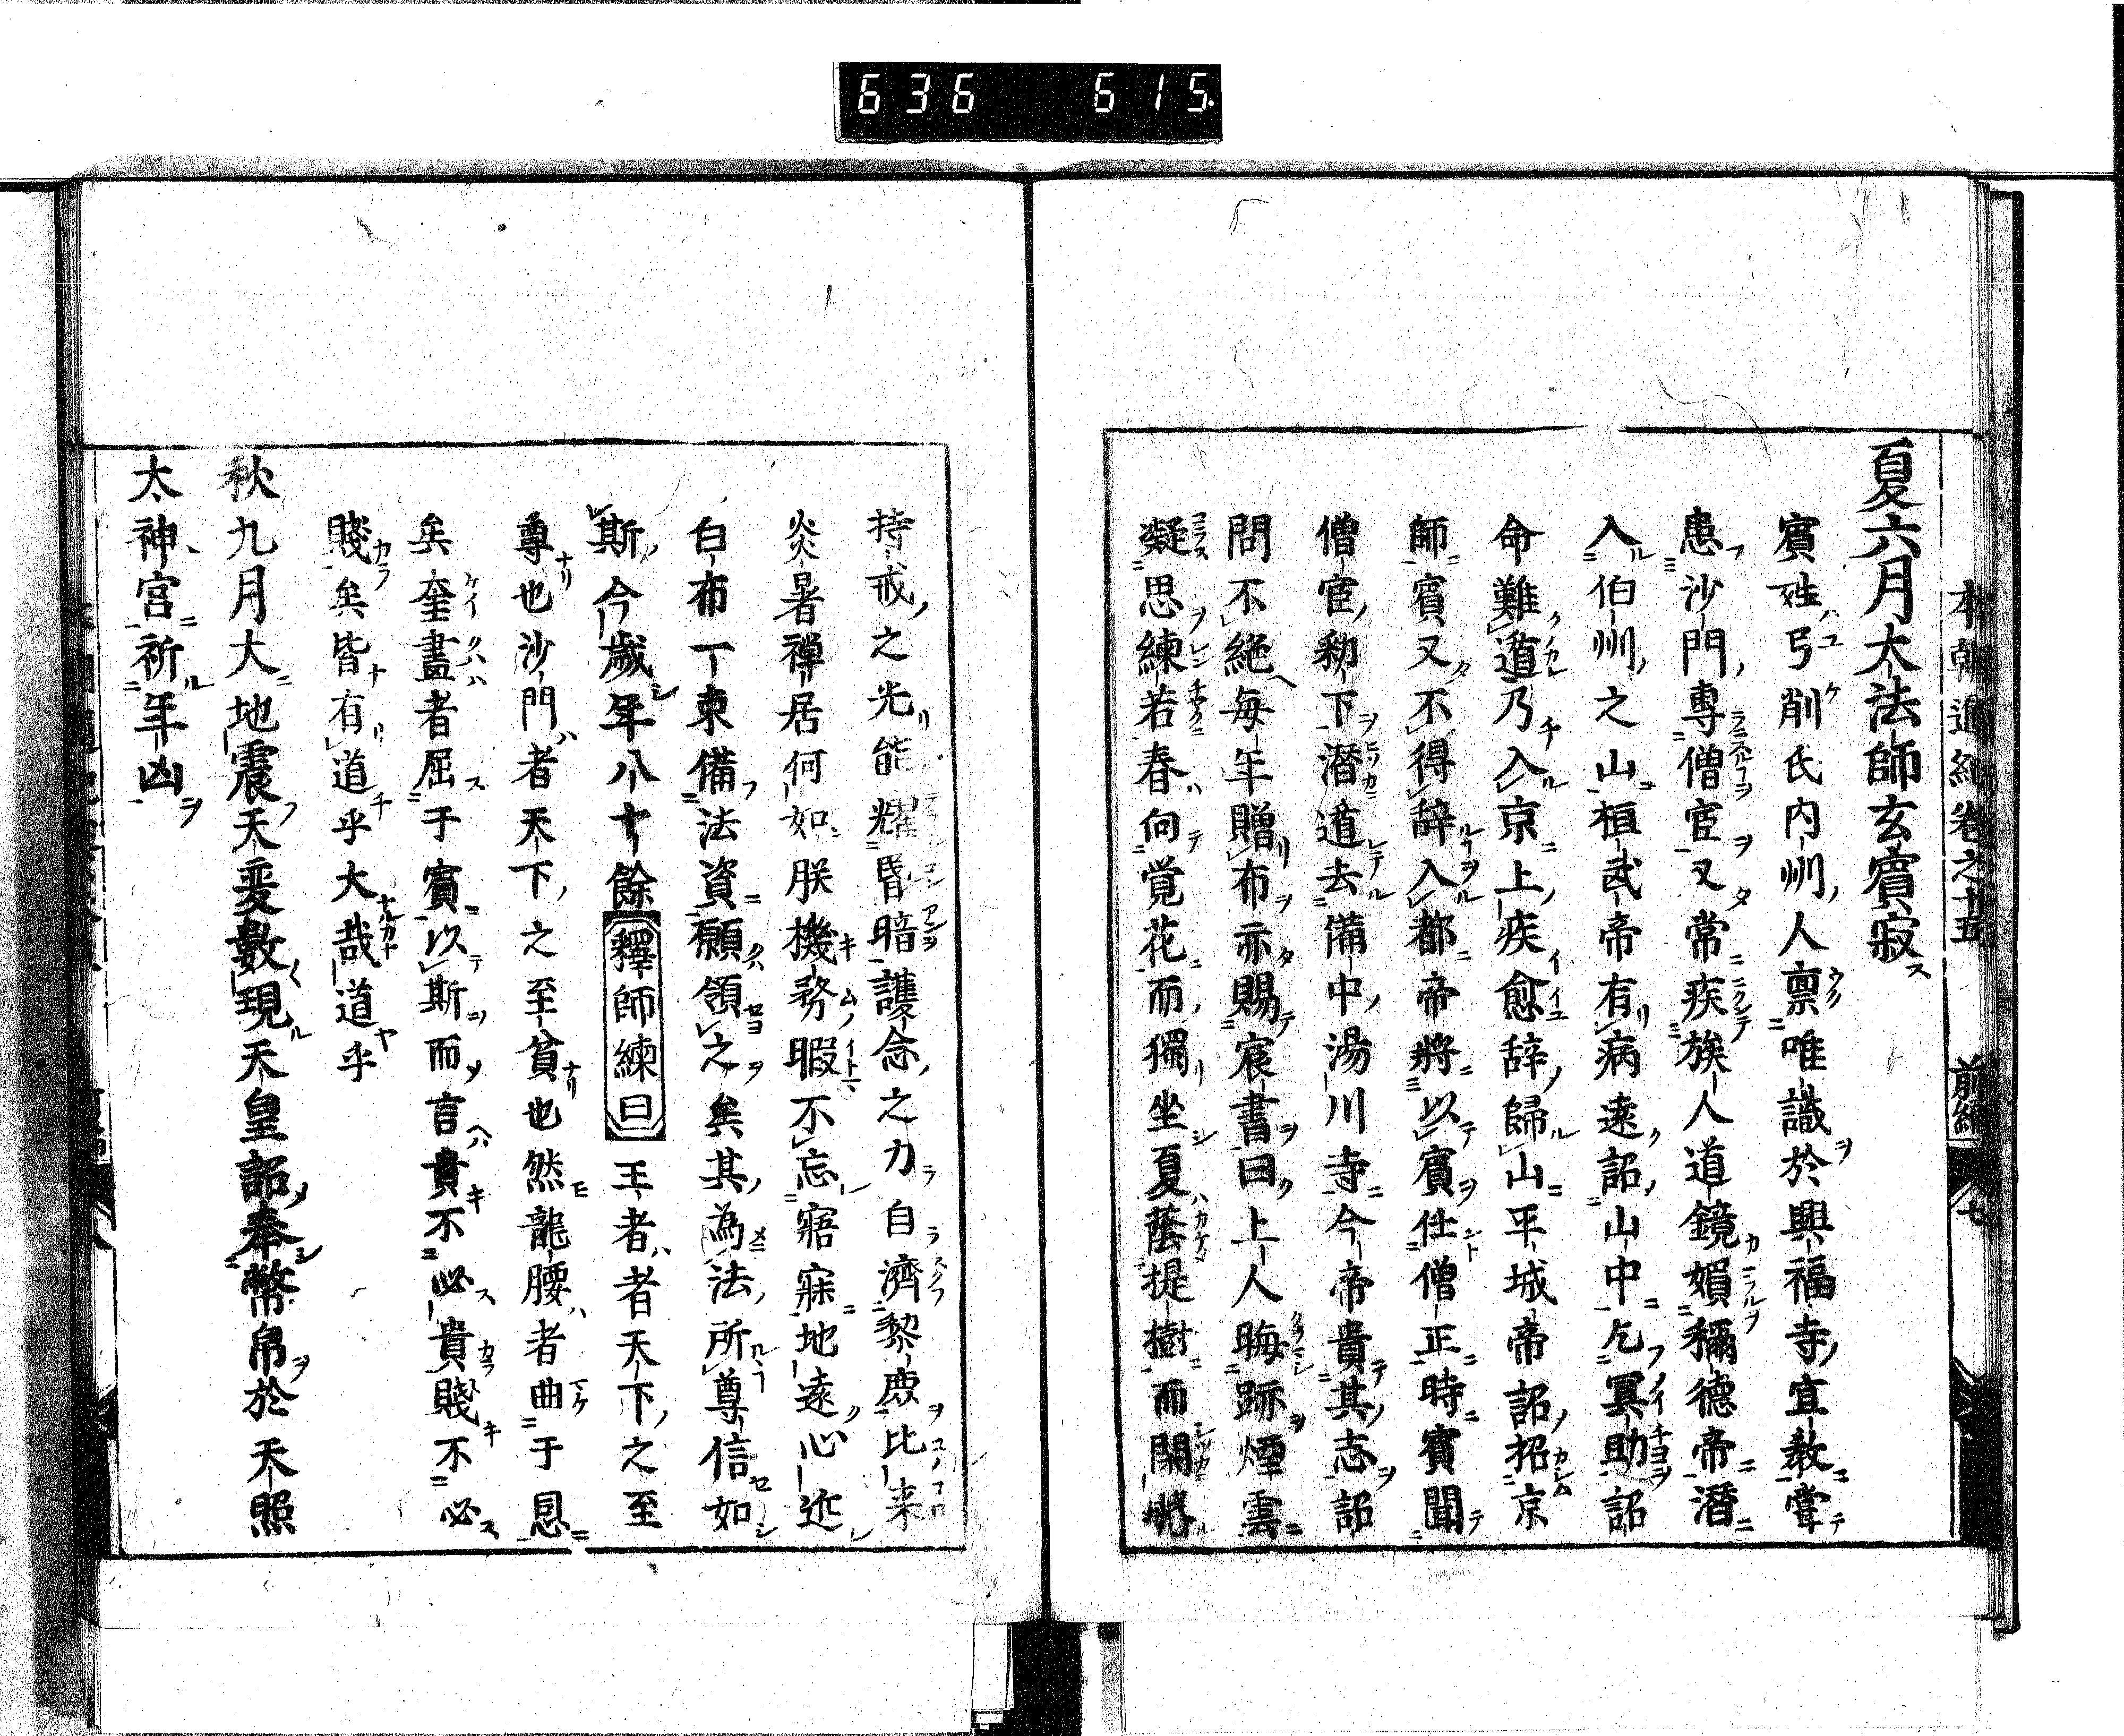 636 615
本朝通紀卷之十五 前編 七
夏六月大法師玄賓寂
賓姓弓削氏内州人禀唯識於興福寺宣教嘗
患沙門專僧官又常疾族人道鏡媚稱德帝潛
入伯州之山桓武帝有病遠詔山中乞冥助詔
命難遁乃入京上疾愈辞歸山平城帝詔招京
師賓又不得辞入都帝將以賓任僧正時賓聞
僧官勅下潛遁去備中湯川寺今帝貴其志詔
問不絶每年贈布亦賜宸書曰上人晦跡煙雲
凝思練若春向覚花而獨坐夏蔭提樹而閑眠
持戒之光能耀昏暗護念之力自濟黎庶比来
炎暑禅居何如朕機務暇不忘寤寐地遠心近
白布一束備法資願領之矣其為法所尊信如
斯今歲年八十餘釋師練曰王者者天下之至
尊也沙門者天下之至貧也然龍腰者曲于恩
矣奎畫者屈于賓以斯而言貴不必貴賤不必
賤矣皆有道乎大哉道乎
秋九月大地震天変數現天皇詔奉幣帛於天照
太神宮祈年凶